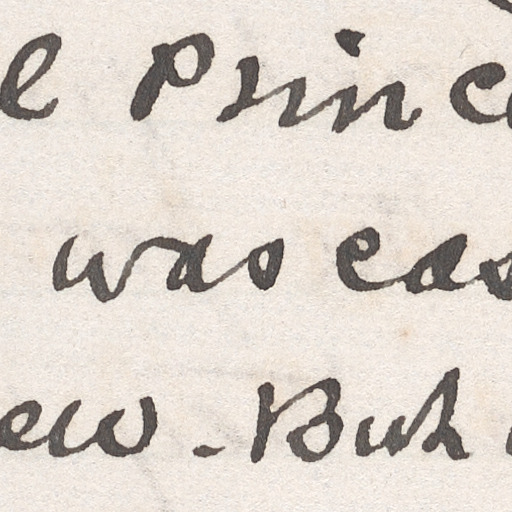 e Princ
was eas
ew. But